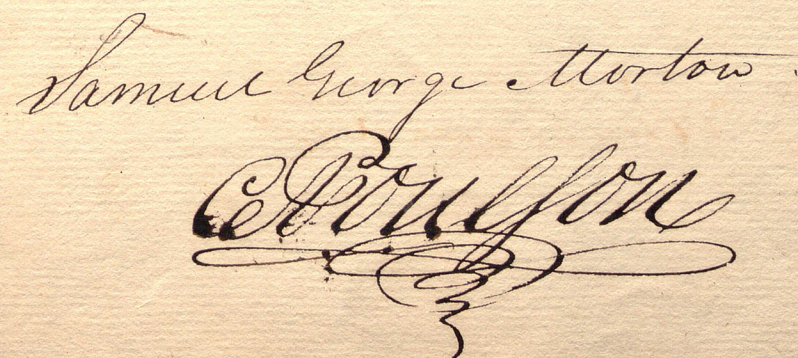 Samuel George Morton
C Poulson